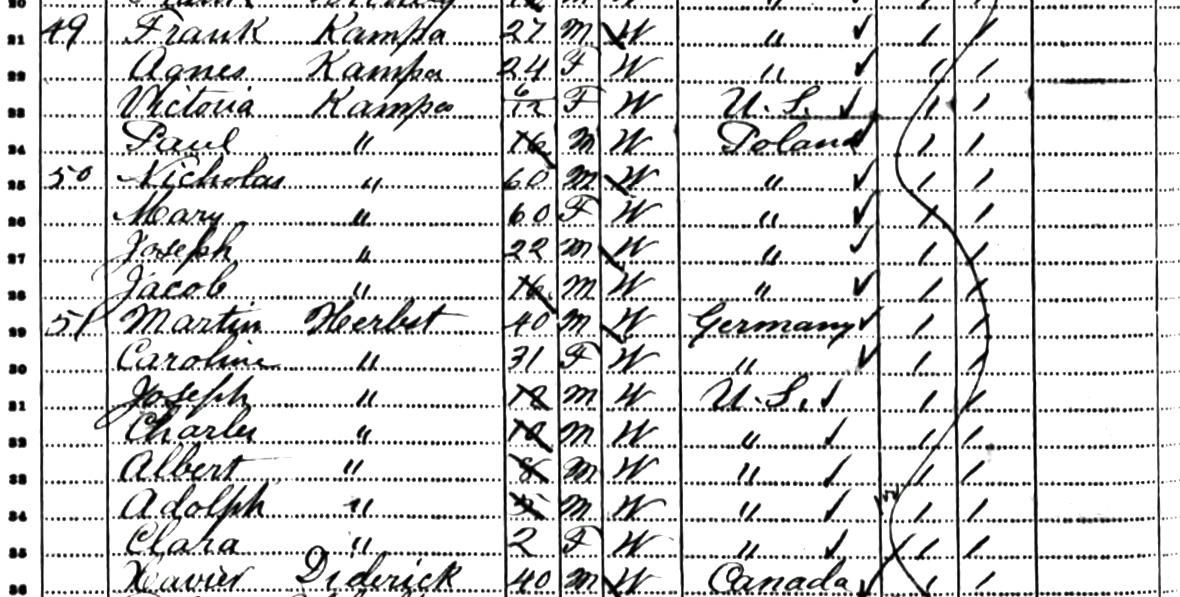 21 49 Frank Kampa 27 M W " ✓ / /
22 Agnes Kampa 24 F W " ✓ / /
23 Victoria Kampa 6/12 F W U.S. ✓ / /
24 Paul " 16 M W Poland ✓ / /
25 50 Nicholas " 60 M W " ✓ / /
26 Mary " 60 F W " ✓ / /
27 Joseph " 22 M W " ✓ / /
28 Jacob " 16 M W " ✓ / /
29 51 Martin Herbst 40 M W Germany ✓ / /
30 Caroline " 31 F W " ✓ / /
31 Joseph " M W U.S. ✓ / /
32 Charles " M W " ✓ / /
33 Albert " 8 M W " ✓ / /
34 Adolph " M W " ✓ / /
35 Clara " 2 F W " ✓ / /
36 Xavier Diderick 40 M W Canada ✓ / /